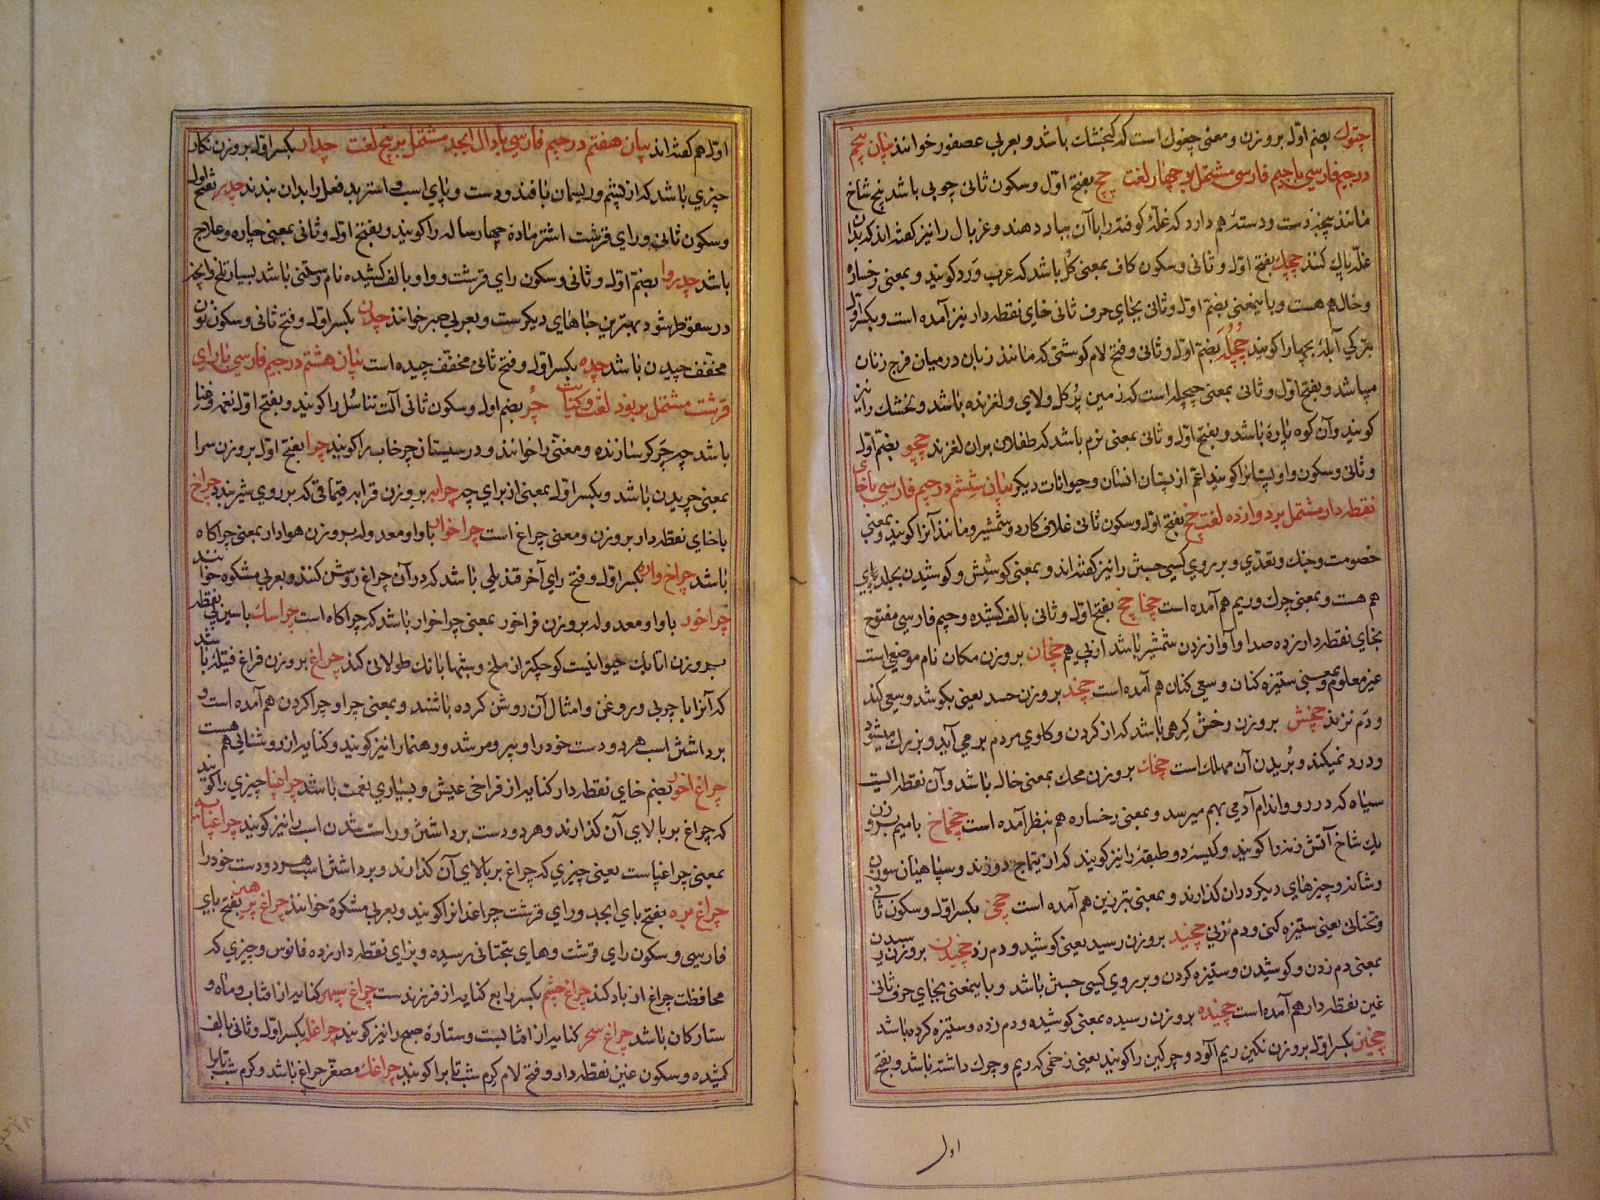 چتوک بضم اول بروزن و معنی چغوک است که کنجشک باشد و بعربی عصفور خوانند بیان پنجم
در جیم فارسی با جیم فارسی مشتمل بر چهار لغت چچ بفتح اول و سکون ثانی چوبی باشد پنج شاخ
مانند پنجه دست و دسته هم دارد که غله کوفته را با آن بباد دهند و غربال را نیز گفته‌اند که بدان
غله پاک کنند چچک بفتح اول و ثانی و سکون کاف بمعنی گل باشد که عرب ورد گویند و بمعنی رخساره
و خال هم هست و باینمعنی بضم اول و ثانی بجای حرف ثانی خای نقطه‌دار نیز آمده است و بکسر اول
بترکی آبله بچها را گویند چچله بضم اول و ثانی و فتح لام گوشتی که مانند زبان در میان فرج زنان
میباشد و بفتح اول و ثانی بمعنی چچله است که زمین پر گل و لای و لغزنده باشد و نیز
گویند و آن کوه پاره باشد و بفتح اول و ثانی بمعنی نرم باشد که طفلان بران لغزند چچو بضم اول
و ثانی و سکون واو پستانرا گویند اعم از پستان انسان و حیوانات دیگر بیان ششم در جیم فارسی با خای
نقطه‌دار مشتمل بر دوازده لغت چخ بفتح اول و سکون ثانی غلاف کارد و شمشیر و مانند آنرا گویند و بمعنی
خصومت و جنگ و تعدی و بر روی کسی جستن را نیز گفته‌اند و بمعنی کوشش و کوشیدن
هم هست و بمعنی چرک و ریم هم آمده است چخاچخ بفتح اول و ثانی بالف کشیده و جیم فارسی مفتوح
بخای نقطه‌دار زده صدا و آواز زدن شمشیر باشد از پی هم چخان بروزن مکان نام موضعی است
غیر معلوم و بمعنی ستیزه کنان و سعی کنان هم آمده است چخد بروزن حسد یعنی بکوشد و سعی کند
و دم نزند چخش بروزن رخش گرهی باشد که از گردن و گلوی مردم برمی‌آید و بزرگ میشود
و درد نمیکند و بریدن آن مهلک است چخک بروزن محک بمعنی خال باشد و آن نقطه‌ایست
سیاه که در رو و اندام آدمی بهم میرسد و بمعنی رخساره هم بنظر آمده است چخماخ با میم بروزن
یک شاخ آتش زنه را گویند و کیسه دو طبقه را نیز گویند که از تیماج دوزند و سپاهیان سوزن
و شانه و چیزهای دیگر دران گذارند و بمعنی تبرزین هم آمده است چخی بکسر اول و سکون ثانی
و تحتانی یعنی ستیزه کنی و دم نزنی چخید بروزن رسید یعنی کوشید و دم زد چخیدن بروزن رسیدن
بمعنی دم زدن و کوشیدن و ستیزه کردن و بر روی کسی جستن باشد و باینمعنی بجای حرف ثانی
غین نقطه‌دار هم آمده است چخیده بروزن رسیده بمعنی کوشیده و دم زده و ستیزه کرده باشد
چخین بکسر اول بروزن نگین ریم آلود و چرکین را گویند یعنی زخمی که ریم و چرک داشته باشد و بفتح
اول
اول هم گفته‌اند بیان هفتم در جیم فارسی با دال ابجد مشتمل بر پنج لغت چدار بکسر اول بروزن نگار
چیزی باشد که از پشم و ریسمان بافند و دست و پای اسب و استر بدفعل را بدان بندند چدر بفتح اول
و سکون ثانی و رای قرشت اشتر ماده چهار ساله را گویند و بفتح اول و ثانی بمعنی چاره و علاج
باشد چدروا بضم اول و ثانی و سکون رای قرشت و واو بالف کشیده نام رستنی باشد بسیار تلخ
در سقوطر شود بهترین جاهای دیگرست و بعربی صبر خوانند چدن بکسر اول و فتح ثانی و سکون نون
مخفف چیدن باشد چده بکسر اول و فتح ثانی مخفف چیده است بیان هشتم در جیم فارسی با رای
قرشت مشتمل بر نود لغت و کنایت چر بضم اول و سکون ثانی آلت تناسل را گویند و بفتح اول نغمه و غنا
باشد چه چرگر سازنده و مغنی را خوانند و در سیستان چرخاب را گویند چرا بفتح اول بروزن سرا
بمعنی چریدن باشد و بکسر اول بمعنی از برای چه چرابه بروزن قرابه قیماقی که بر روی شیر بندد چراخ
با خای نقطه‌دار بروزن و معنی چراغ است چراخوا با واو معدوله بروزن هوادار بمعنی چراگاه
باشد چراخ واره بکسر اول و فتح رای آخر قندیلی باشد که در آن چراغ روشن کنند و بعربی مشکوة خوانند
چراخور با واو معدوله بروزن فراخور بمعنی چراخوار باشد که چراگاه است چراسک با سین بی نقطه
بروزن اتابک حیوانیست کوچکتر از ملخ و شبها بانگ طولانی کند چراغ بروزن فراغ فتیله باشد
که آنرا با چربی و روغن و امثال آن روشن کرده باشند و بمعنی چرا و چرا کردن هم آمده است و
برداشتن اسب هر دو دست خود را و پیر و مرشد و رهنما را نیز گویند و کنایه از روشنائی هم هست
چراغ آخور بضم خای نقطه‌دار کنایه از فراخی عیش و بسیاری نعمت باشد چراغپا چیزی را گویند
که چراغ بر بالای آن گذارند و هر دو دست برداشتن و راست شدن اسب را نیز گویند چراغپایه
بمعنی چراغپاست یعنی چیزی که چراغ بر بالای آن گذارند و برداشتن اسب هر دو دست خود را
چراغ بره بفتح بای ابجد و رای قرشت چراغدانرا گویند و بعربی مشکوة خوانند چراغ پرهیز بفتح بای
فارسی و سکون رای قرشت و های بتحتانی رسیده و بزای نقطه‌دار زده فانوس و چیزی که
محافظت چراغ از باد کند چراغ چشم بکسر رابع کنایه از فرزندست چراغ سپهر کنایه از آفتاب و ماه و
ستارگان باشد چراغ سحر کنایه از آفتابست و ستاره صبح را نیز گویند چراغله بکسر اول و ثانی بالف
کشیده و سکون غین نقطه‌دار و فتح لام کرم شب تاب را گویند چراغک مصغر چراغ باشد و کرم شب تاب را